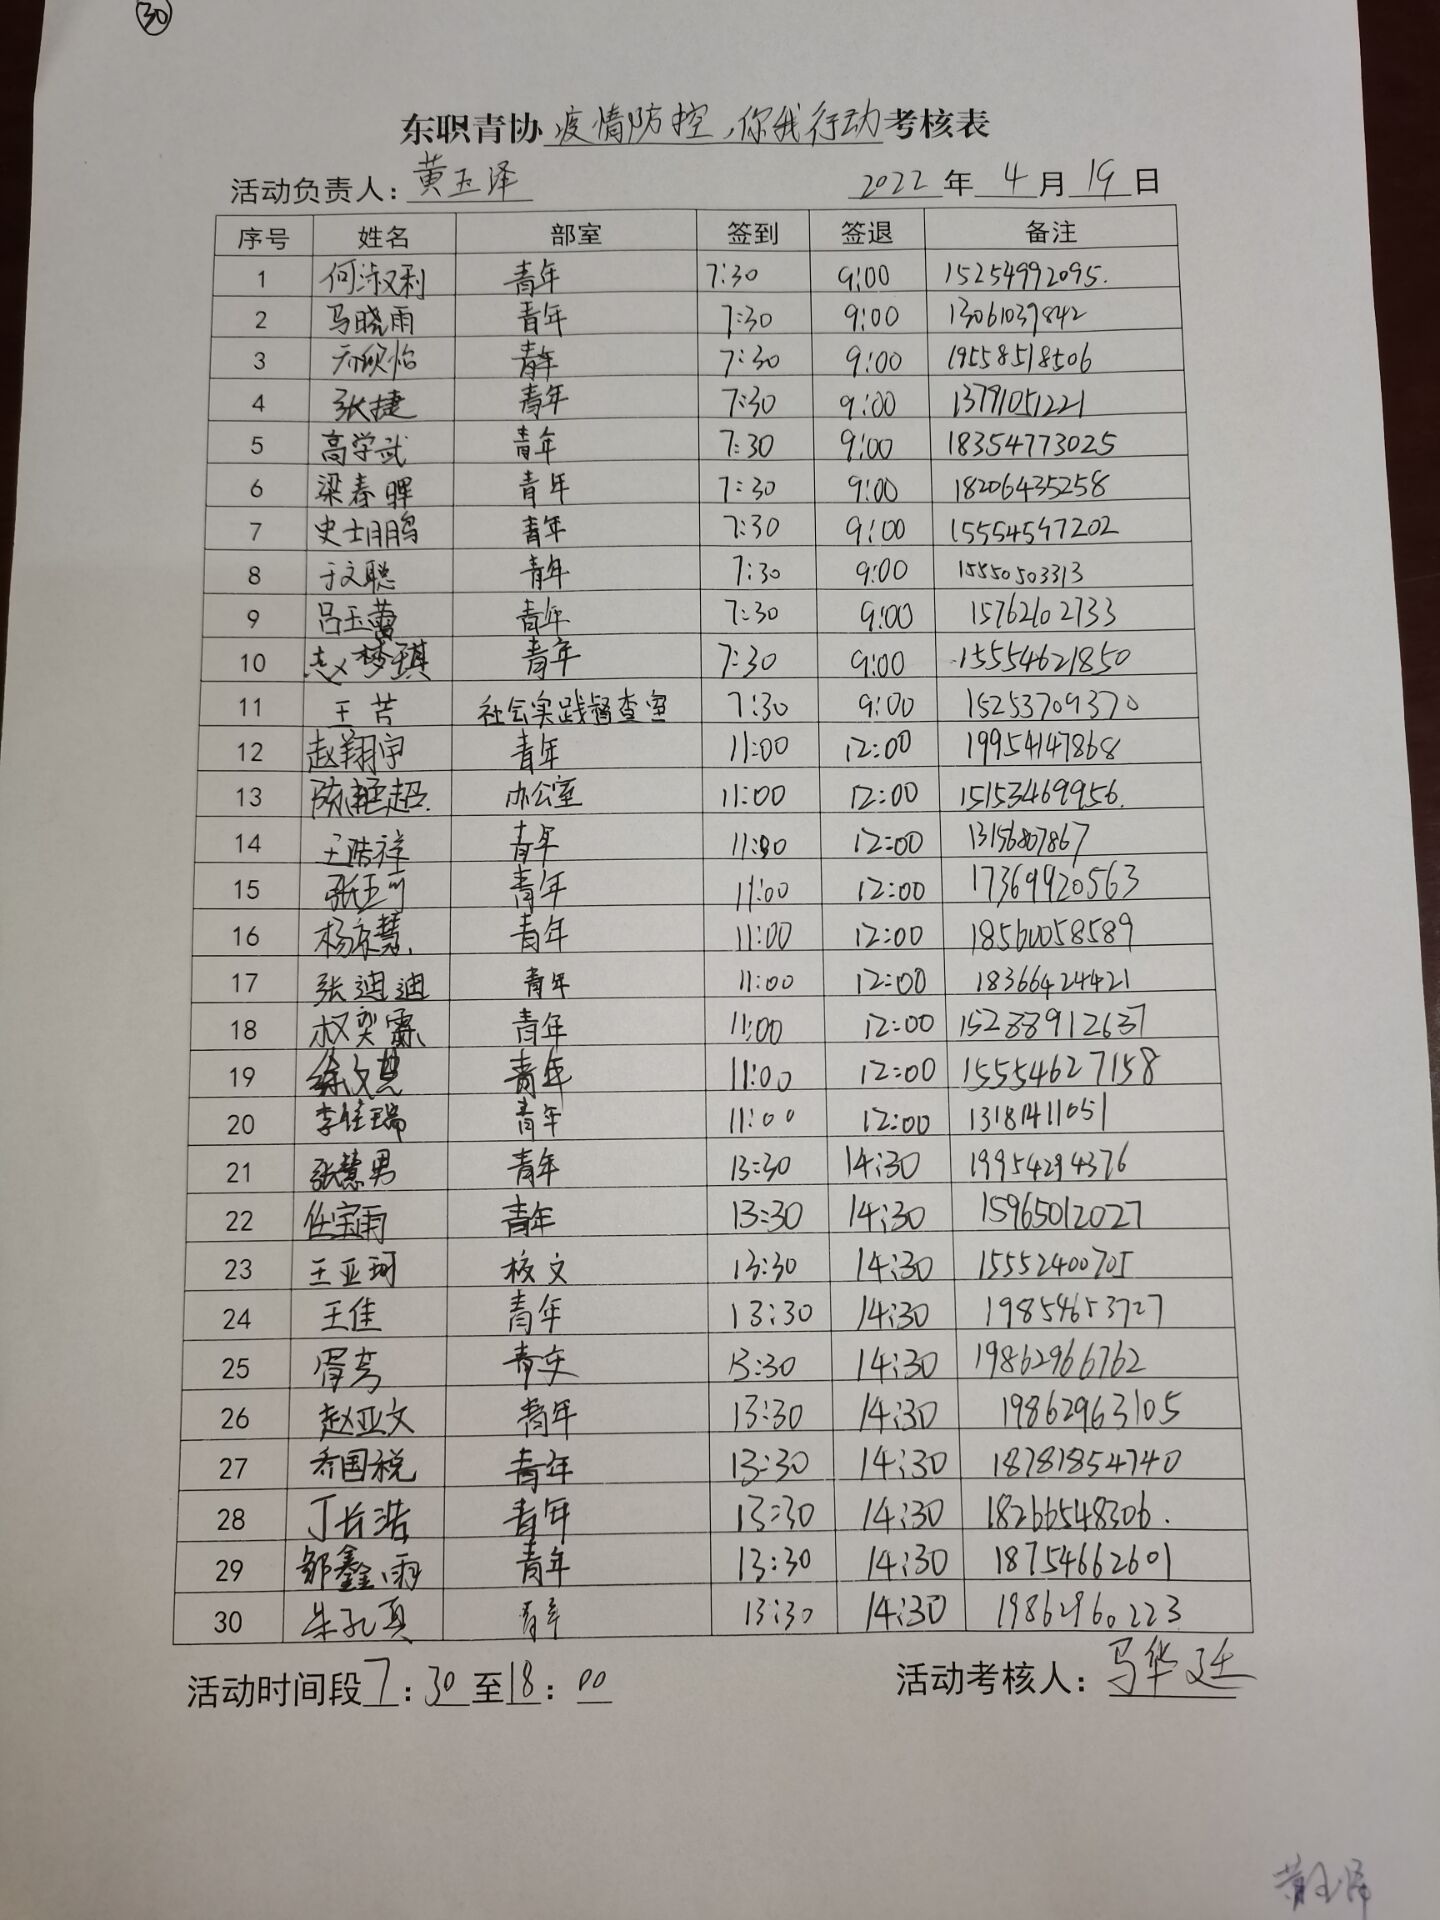 30
东职青协疫情防控,你我行动考核表
活动负责人:黄玉泽 2022年4月19日
序号 姓名 部室 签到 签退 备注
1 何淑利 青年 7:30 9:00 15254992095.
2 马晓雨 青年 7:30 9:00 13061037842
3 青年 7:30 9:00 19558518506
4 张捷 青年 7:30 9:00 13791051221
5 高学武 青年 7:30 9:00 18354773025
6 梁春晖 青年 7:30 9:00 18206435258
7 史士鹏 青年 7:30 9:00 15554597202
8 于文聪 青年 7:30 9:00 15550503313
9 吕玉蕾 青年 7:30 9:00 15762102733
10 赵梦琪 青年 7:30 9:00 15554621850
11 王苦 社会实践督查室 7:30 9:00 15253709370
12 赵翔宇 青年 11:00 12:00 19954147868
13 办公室 11:00 12:00 15153469956.
14 王浩祥 青年 11:00 12:00 13156807867
15 张玉可 青年 11:00 12:00 17369920563
16 青年 11:00 12:00 18560058589
17 张迪迪 青年 11:00 12:00 18366424421
18 权奕霖 青年 11:00 12:00 15288912637
19 徐文慧 青年 11:00 12:00 15554627158
20 李佳瑞 青年 11:00 12:00 13181411051
21 张慧男 青年 13:30 14:30 19954294376
22 任宝雨 青年 13:30 14:30 15965012027
23 王亚珂 校文 13:30 14:30 15552400705
24 王佳 青年 13:30 14:30 19854653727
25 13:30 14:30 19862966762
26 赵亚文 青年 13:30 14:30 19862963105
27 乔国税 青年 13:30 14:30 18781854740
28 丁长浩 青年 13:30 14:30 18266548306.
29 邹鑫雨 青年 13:30 14:30 18754662601
30 朱孔真 青年 13:30 14:30 19862960223
活动时间段7:30至18:00 活动考核人:马华廷
黄玉泽